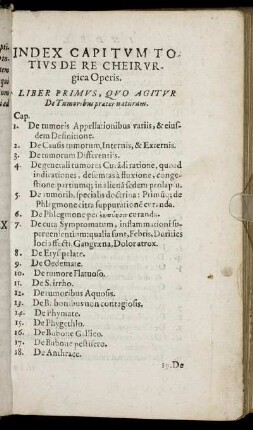 INDEX CAPITVM TO-
TIVS DE RE CHEIRVR-
gica Operis.
LIBER PRIMVS, QVO AGITVR
De Tumoribus præter naturam.
Cap.
1. De tumoris Appellationibus variis, & eius-
dem Definitione.
2. De Causis tumorum, Internis, & Externis.
3. De tumorum Differentiis.
4. De generali tumores Curādi ratione, quoad
indicationes, desumtas à fluxione, conge-
stione partiumq; in alienā sedem prolapsu.
5. De tumorib. specialis doctrina: Primūq; de
Phlegmone citra suppurationē curanda.
6. De Phlegmone per curanda.
7. De cura Symptomatum, inflammationi su-
peruenientium: qualia sunt, Febris, Durities
loci affecti, Gangræna, Dolor atrox.
8. De Erysipelate.
9. De Oedemate.
10. De tumore Flatuoso.
11. De Scirrho.
12. De tumoribus Aquosis.
13. De Bubonibus non contagiosis.
14. De Phymate.
15. De Phygethlo.
16. De Bubone Gallico.
17. De Bubone pestifero.
18. De Anthrace.
19. De